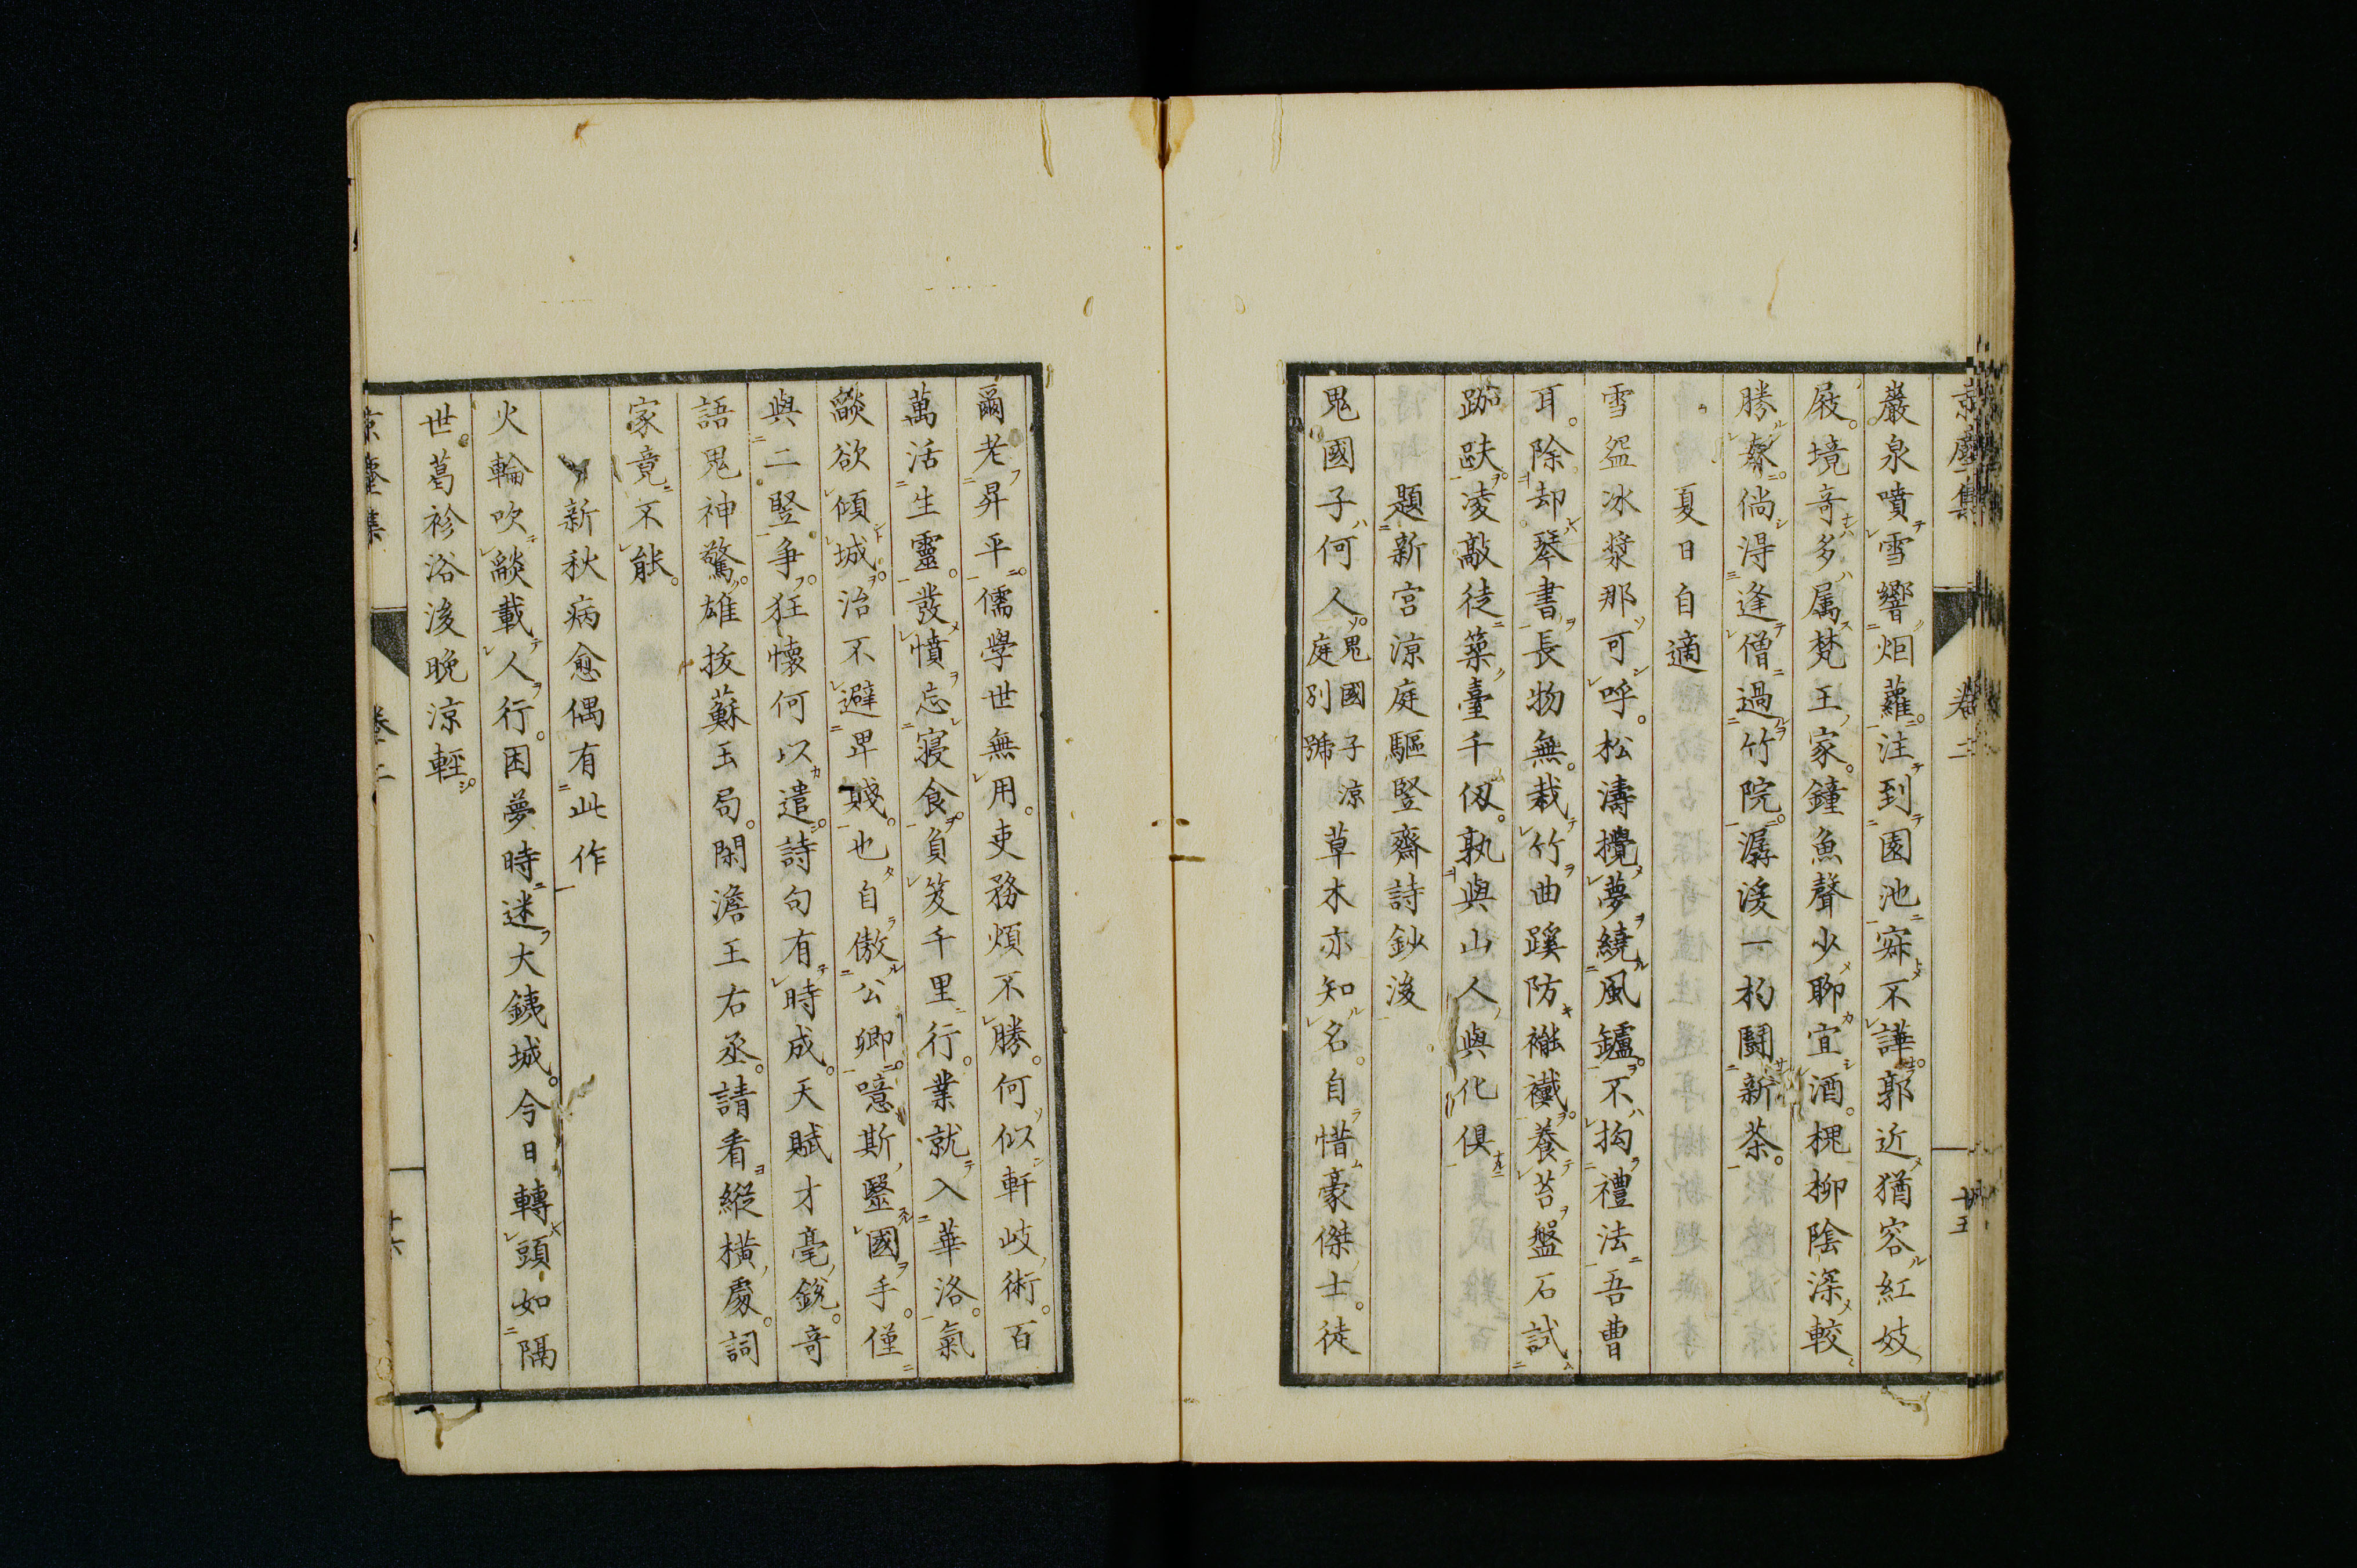 巖泉噴雪響烟蘿。注到園池寂不譁。郭近猶容紅妓
屐。境奇多属梵王家。鐘魚聲少聊宜酒。槐柳陰深較
勝麥。倘淂逢僧過竹院。潺湲一杓鬪新茶。
夏日自適
雪盌冰漿那可呼。松濤攪夢繞風鑪。不拘禮法吾曹
耳。除却琴書長物無。栽竹曲蹊防襶襳。養苔盤石試
跏趺。凌敲徒築臺千仭。孰與山人與化俱
題新宮涼庭驅竪齋詩鈔後
鬼國子何人。鬼國子涼庭別號草木亦知名。自惜豪傑士。徒
爾老昇平。儒學世無用。吏務煩不勝。何似軒岐術。百
萬活生靈。發憤忘寢食。負笈千里行。業就入華洛。氣
燄欲傾城。治不避卑賤。也自傲公卿。噫斯毉國手。僅
與二竪爭。狂懷何以遣。詩句有時成。天賦才毫銳。奇
語鬼神驚。雄拔蘇玉局。閑澹王右丞。請看縱橫處。詞
家竟不能。
新秋病愈偶有此作
火輪吹燄載人行。困夢時迷大銕城。今日轉頭如隔
世。葛衫浴後晩涼輕。